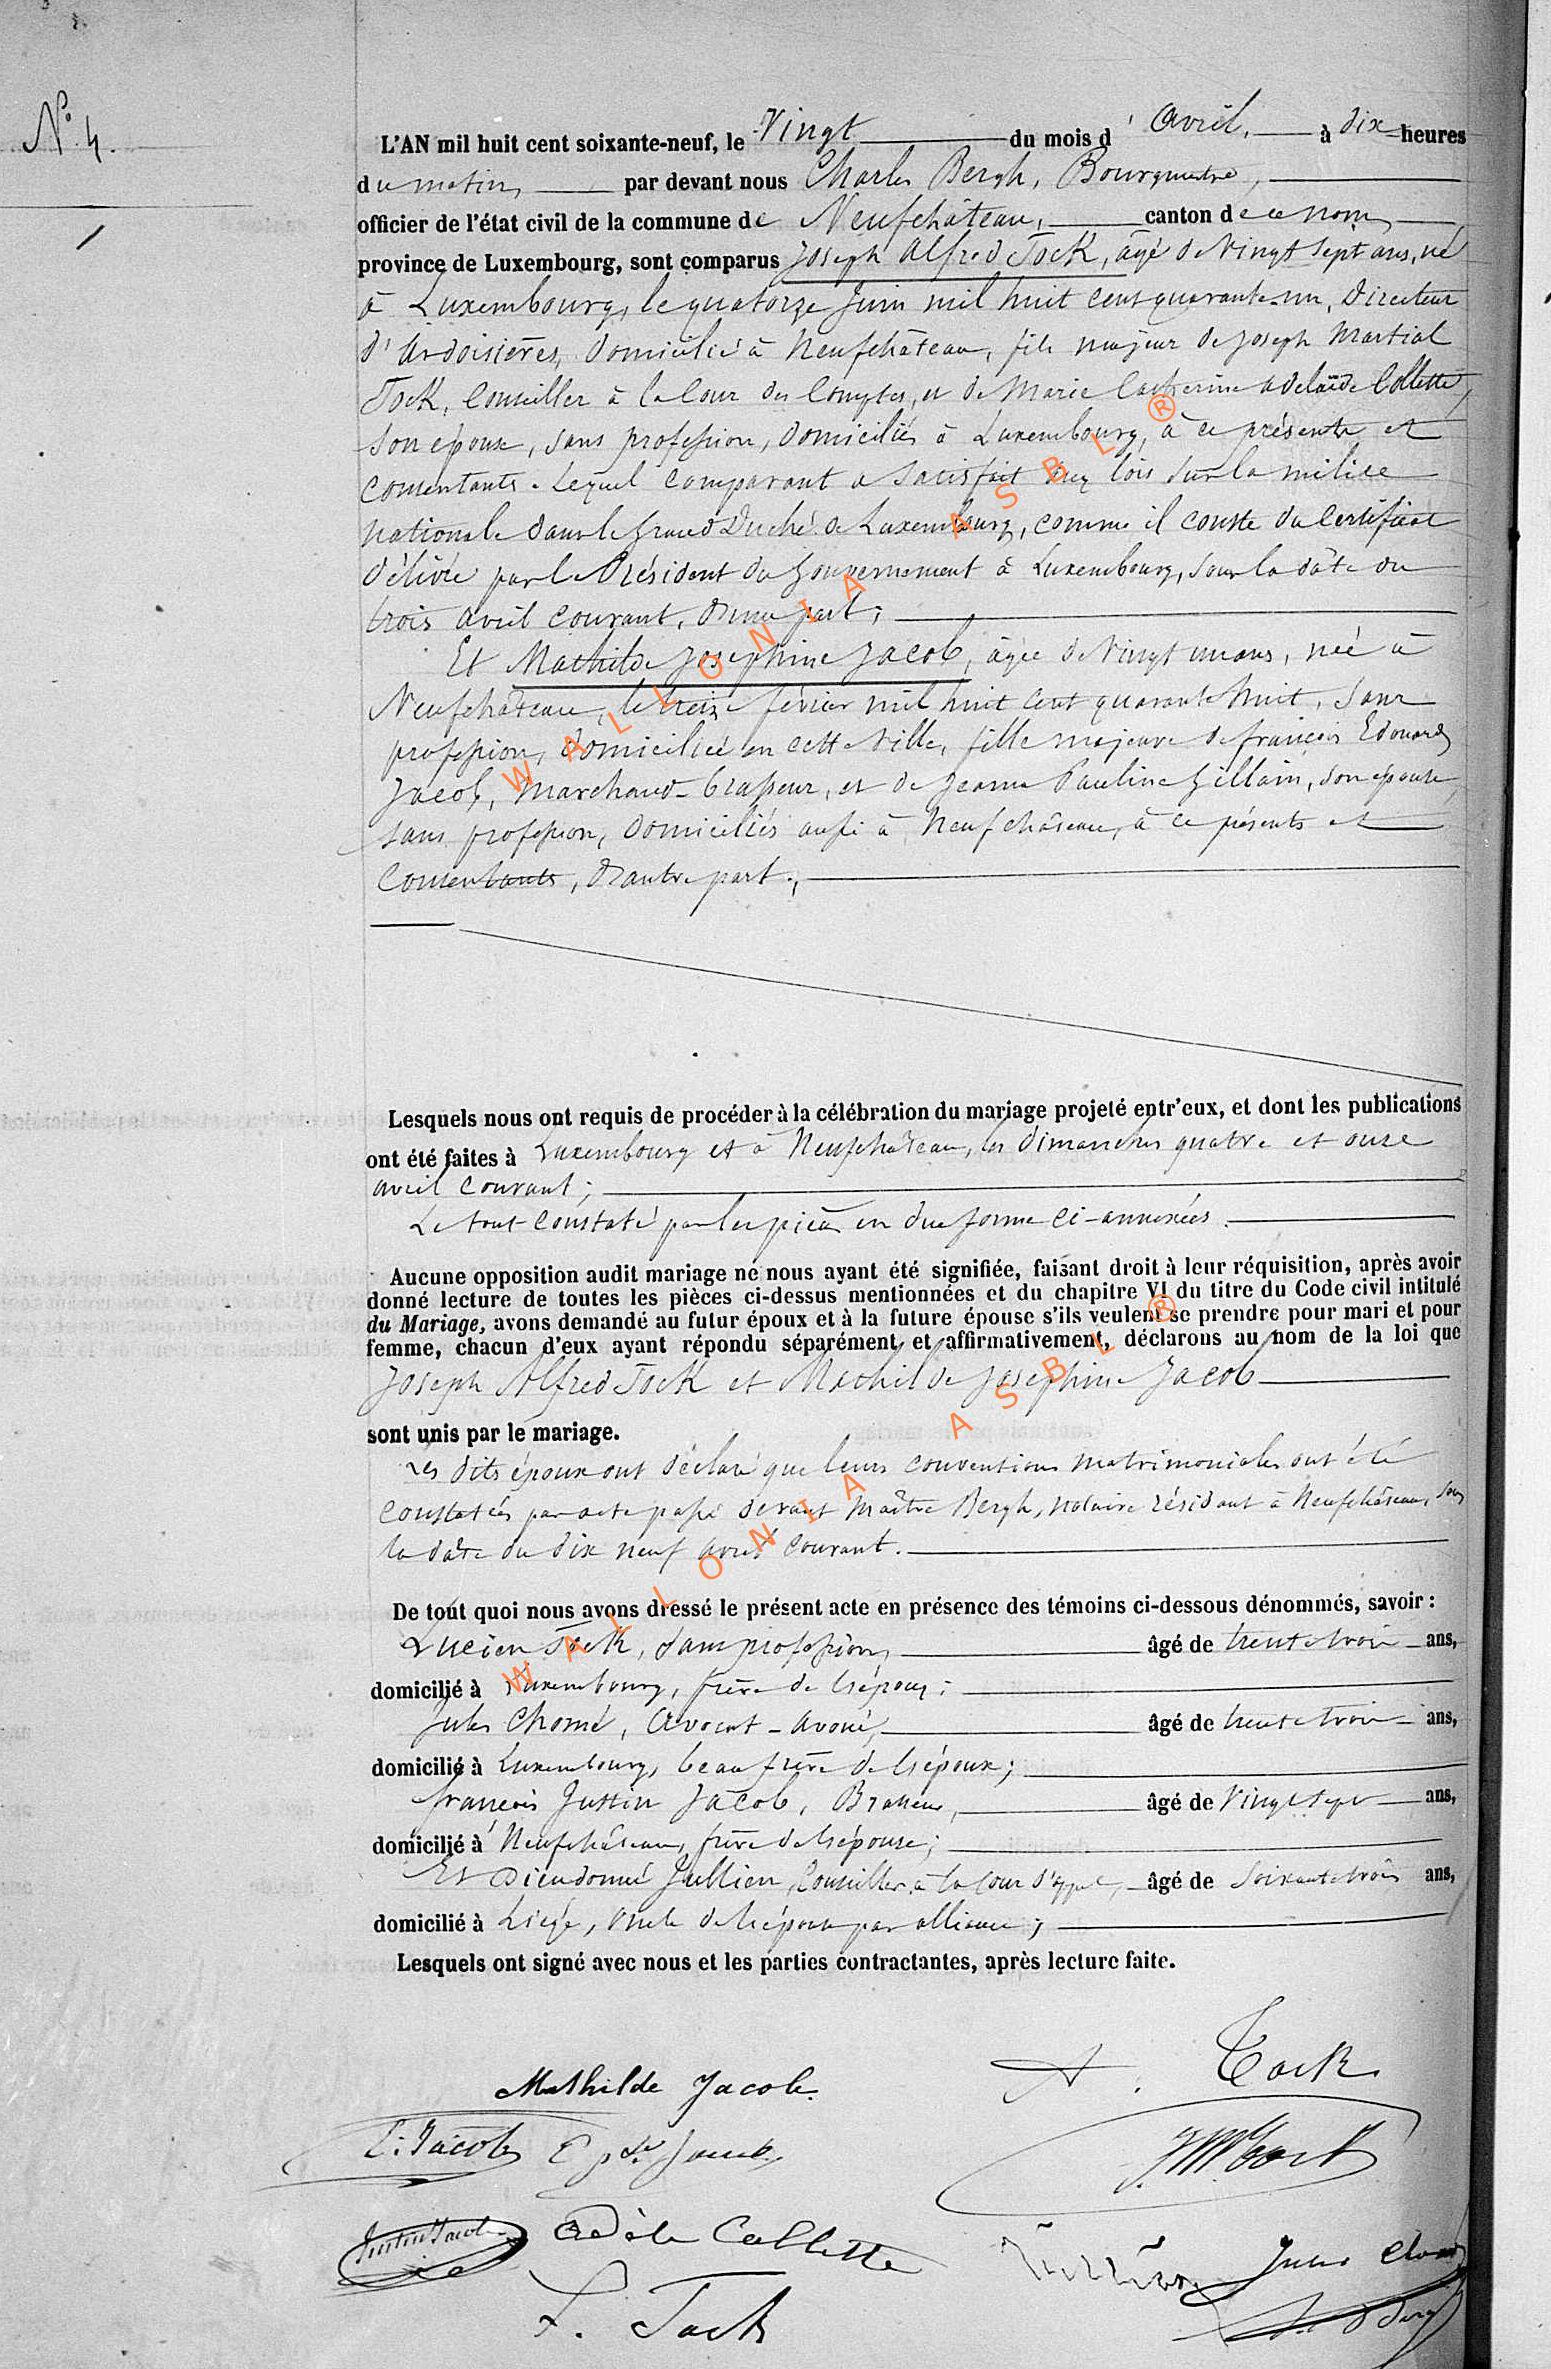 N° 4.
L'AN mil huit cent soixante-neuf, le Vingt du mois d' avril, à dix heures
du matin, par devant nous Charles Bergh, Bourgmestre,
officier de l'état civil de la commune de Neufchâteau, canton de ce nom,
province de Luxembourg, sont comparus Joseph Alfred Tock, âgé de vingt sept ans, né
à Luxembourg, le quatorze Juin mil huit cent quarante-un, Directeur
d'Ardoisières, domicilié à Neufchâteau, fils majeur de Joseph Martial
Tock, Conseiller à la Cour des Comptes, et de Marie Catherine Adelaïde Collette,
son épouse, sans profession, domiciliés à Luxembourg, à ce présents et
consentants. Lequel comparant a satisfait aux lois sur la milice
nationale dans le Grand Duché de Luxembourg, comme il conste du Certificat
délivré par le Président du Gouvernement à Luxembourg, sous la date du
trois avril courant, d'une part;
Et Mathilde Josephine Jacob, âgée de vingt un ans, née à
Neufchâteau, le treize février mil huit cent quarante huit, sans
profession, domiciliée en cette ville, fille majeure de françois Edouard
Jacob, Marchand-brasseur, et de Jeanne Pauline Gillain, son épouse,
sans profession, domiciliés aussi à Neufchâteau, à ce présents et
consentants, d'autre part.,
Lesquels nous ont requis de procéder à la célébration du mariage projeté entr'eux, et dont les publications
ont été faites à Luxembourg et à Neufchâteau, les dimanches quatre et onze
avril courant;
Le tout constaté par les pièces en due forme ci-annexées.
Aucune opposition audit mariage ne nous ayant été signifiée, faisant droit à leur réquisition, après avoir
donné lecture de toutes les pièces ci-dessus mentionnées et du chapitre VI du titre du Code civil intitulé
du Mariage, avons demandé au futur époux et à la future épouse s'ils veulent se prendre pour mari et pour
femme, chacun d'eux ayant répondu séparément et affirmativement, déclarons au nom de la loi que
Joseph Alfred Tock et Mathilde Josephine Jacob
sont unis par le mariage.
Les dits époux ont déclaré que leurs conventions matrimoniales ont été
constatées par acte passé devant Maître Bergh, notaire résidant à Neufchâteau, sous
la date du dix neuf avril courant.
De tout quoi nous avons dressé le présent acte en présence des témoins ci-dessous dénommés, savoir :
Lucien Tock, sans profession, âgé de trente trois ans,
domicilié à Luxembourg, frère de l'époux;
Jules Chomé, Avocat-avoué, âgé de trente trois ans,
domicilié à Luxembourg, beau frère de l'époux;
françois Justin Jacob, Brasseur, âgé de vingt sept ans,
domicilié à Neufchâteau, frère de l'épouse;
Et Dieudonné Jullien, Conseiller à la Cour d'appel, âgé de soixante trois ans,
domicilié à Liège, oncle de l'épouse par alliance;
Lesquels ont signé avec nous et les parties contractantes, après lecture faite.
Mathilde Jacob. A. Tock
E. Jacob J M Tock
Justin Jacob Adèle Collette Jullien Jules Chomé
L. Tock
WALLONIA ASBL ®
WALLONIA ASBL ®